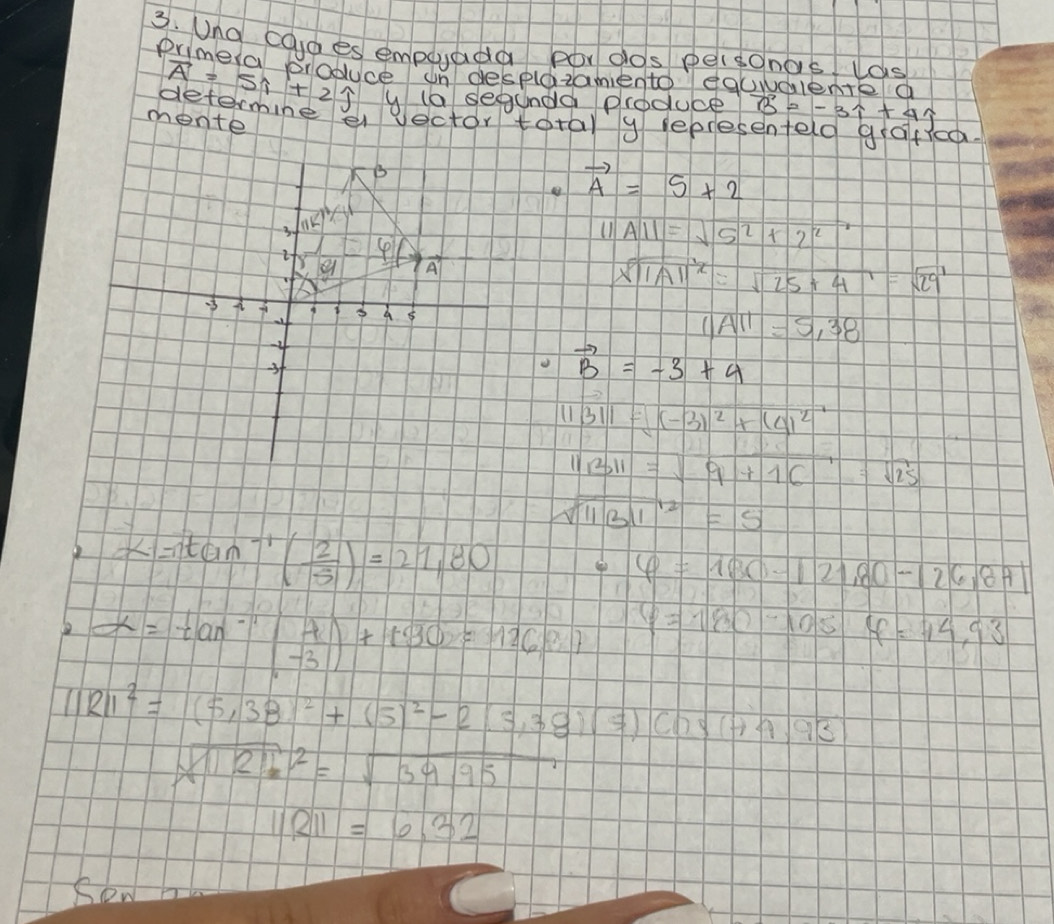 3. Una caja es empujada por dos personas. Las
Primera produce un desplazamiento equivalente a
A = 5î + 2ĵ y la segunda produce B = -3î + 4ĵ
determine el vector total y representelo grafica-
mente
B
||R||
3
2
φ
A
-3
1 2 3 4 5
-1
-2
-3
• A = 5 + 2
||A|| = √5² + 2²
√||A||² = √25 + 4 = √29
||A|| = 5,38
• B = -3 + 4
||B|| = √(-3)² + (4)²
||B|| = √9 + 16 = √25
√||B||² = 5
• α = tan⁻¹ (2/5) = 21,80
• φ = 180 - |21,80 - 126,87|
• α = tan⁻¹ (4/-3) + 180 = 126,87
φ = 180 - 105 φ = 74,93
||R||² = (5,38)² + (5)² - 2(5,38)(5) cos(74,93
√||R||² = √39,95
||R|| = 6,32
Sen